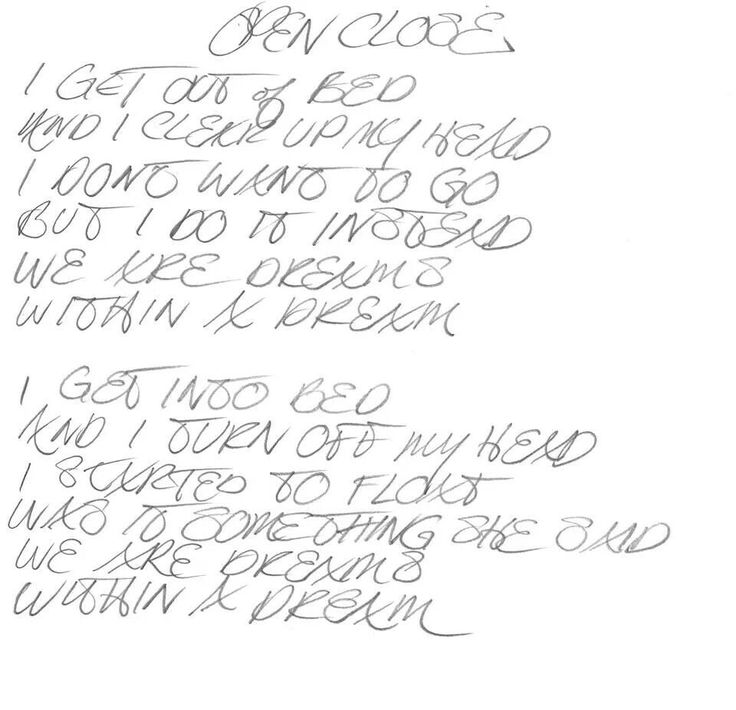 OPEN CLOSE
I GET OUT of BED
AND I CLEAR UP MY HEAD
I DONT WANT TO GO
BUT I DO IT INSTEAD
WE ARE DREAMS
WITHIN A DREAM
I GET INTO BED
AND I TURN OFF MY HEAD
I STARTED TO FLOAT
WAS IT SOMETHING SHE SAID
WE ARE DREAMS
WITHIN A DREAM